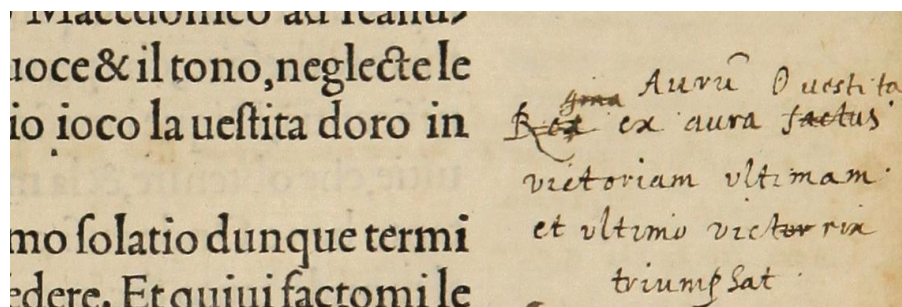 Macedonico ad recanu>
uoce & il tono, neglecte le
io ioco la uestita doro in
mo solatio dunque termi
edere. Et quiui factomi le
Aurũ O uestita
gina
Rex ex aura factus
victoriam vltimam.
et vltimo victor rix
triumphat